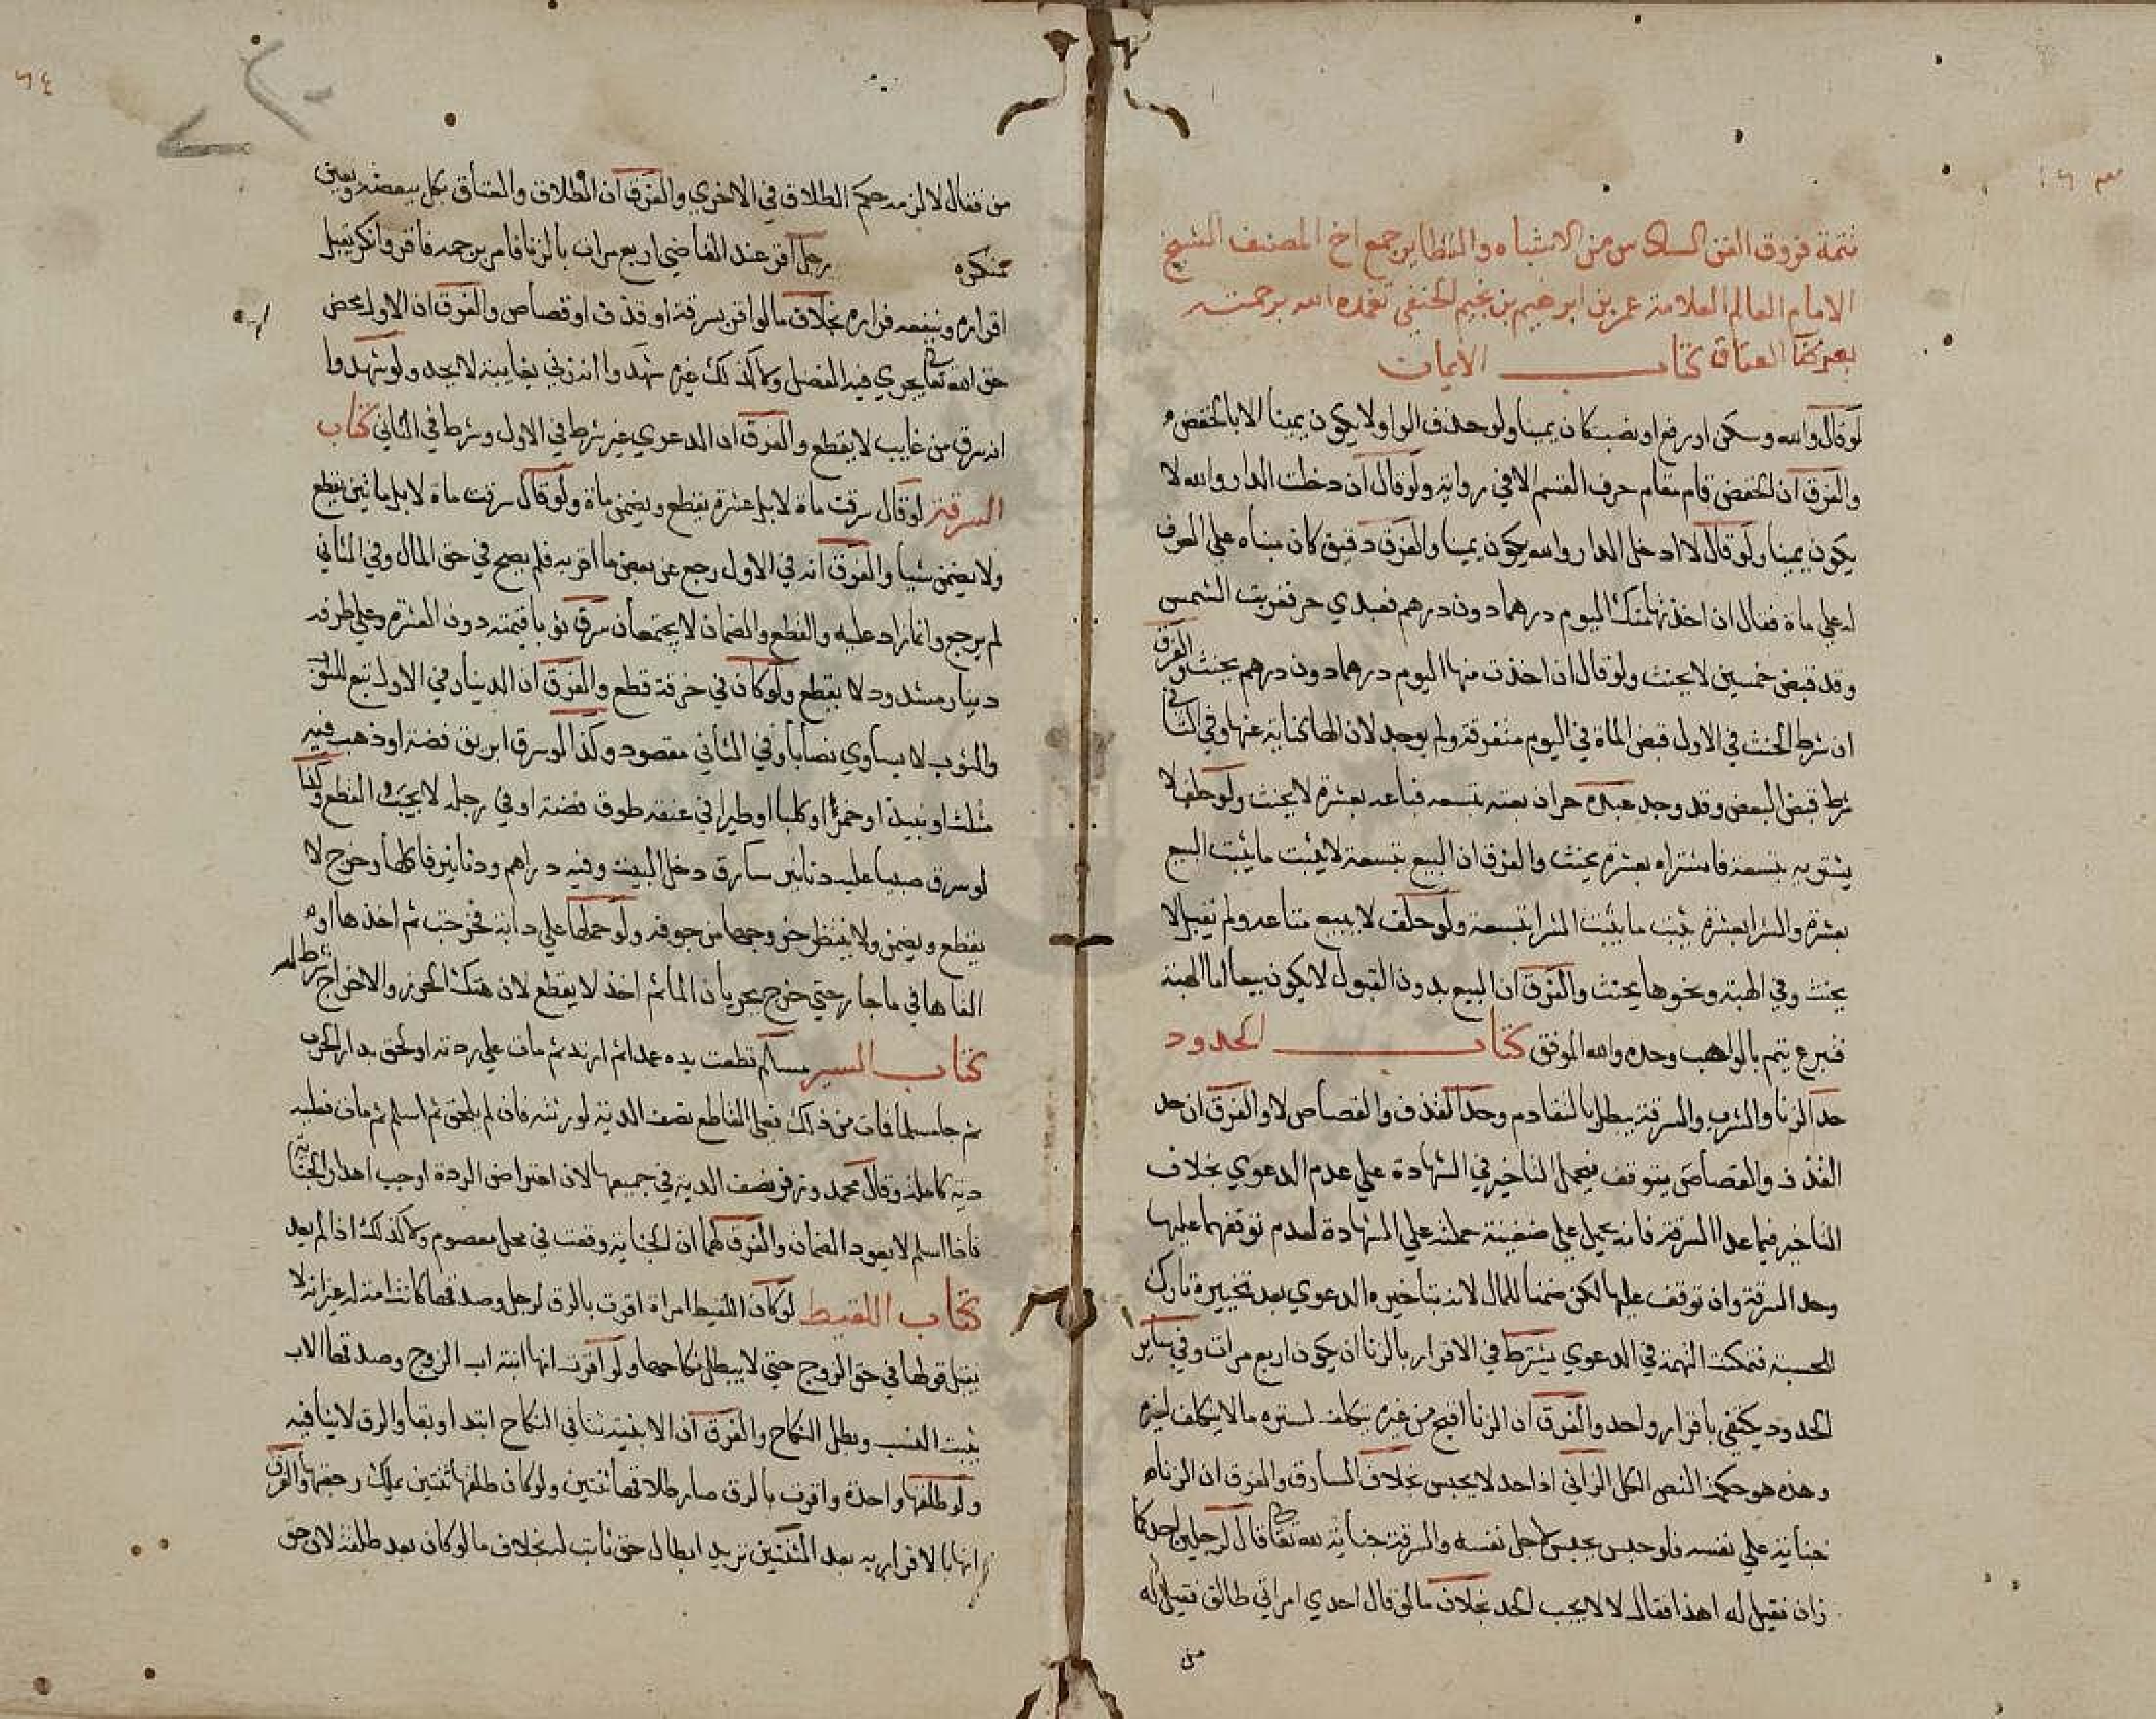 تتمة فروق الفن السادس من الاشباه والنظاير جمع اخ المصنف الشيخ
الامام العالم العلامة عمر بن ابرهيم بن نجيم الحنفي تغمده الله برحمته
العتاق كتاب الأيمان
لو قال والله وسكن او رفع او نصب كان يمينا ولو حذف الواو لا يكون يمينا الا بالخفض
والفرق ان الخفض قام مقام حرف القسم الا في رواية ولو قال ان دخلت الدار والله لا
يكون يمينا ولو قال لا ادخل الدار والله يكون يمينا والفرق دقيق كان مبناه علي العرف
له علي ماة فقال ان اخذتها منك اليوم درهما دون درهم فعبدي حر فغربت الشمس
وقد قبض خمسين لا يحنث ولو قال ان اخذت منها اليوم درهما دون درهم يحنث والفرق
ان شرط الحنث في الاول قبض الماة في اليوم متفرقة ولم يوجد لان الها كناية عنها وفي الثاني
شرط قبض البعض وقد وجد عبده حر ان بعته بتسعة فباعه بعشرة لا يحنث ولو حلف لا
يشتريه بتسعة فاشتراه بعشرة يحنث والفرق ان البيع بتسعة لا يثبت ما يثبت البيع
بعشرة والشرا بعشرة يثبت ما يثبت الشرا بتسعة ولو حلف لا يبيع متاعه ولم يقبل لا
يحنث وفي الهبة ونحوها يحنث والفرق ان البيع بدون القبول لا يكون بيعا اما الهبة
فتبرع يتم بالواهب وحده والله الموفق كتاب الحدود
حد الزنا والشرب والسرقة يبطل بالتقادم وحد القذف والقصاص لا والفرق ان حد
القذف والقصاص يتوقف فيحمل التاخير في الشهادة علي عدم الدعوي بخلاف
التاخير فيما عدا السرقة فانه يحمل علي ضغينة حملته علي الشهادة لعدم توقفهما عليها
وحد السرقة وان توقف عليها لكن ضمنا للمال لانه بتاخيره الدعوي بعد تخييره تارك
للحسبة فتمكنت التهمة في الدعوي يشترط في الاقرار بالزنا ان يكون اربع مرات وفي ساير
الحدود يكتفي باقرار واحد والفرق ان الزنا اقبح من غيره يتكلف لستره ما لا يتكلف لغيره
وهذه هو حكمة النص الكل الزاني اذا حد لا يحبس بخلاف السارق والفرق ان الزنا
جناية علي نفسه فلو حبس يحبس لاجل نفسه والسرقة جناية لله تعا قال لرجلين احدكما
زان فقيل له اهذا فقال لا لا يجب الحد بخلاف ما لو قال احدي امراتي طالق فقيل له
من
من فقال لا لزمه حكم الطلاق في الاخري والفرق ان الطلاق والعتاق
رجل اقر عند القاضي اربع مرات بالزنا فامر برجمه فاقر وانكر يقبل
اقراره وينفعه فراره بخلاف ما لو اقر بسرقة او قذف او قصاص والفرق ان الاول محض
حق الله تعا يجري فيه الفضل ولا كذلك غيره شهدوا انه زني بغايبة لا يحد ولو شهدوا
انه سرق من غايب لا يقطع والفرق ان الدعوي غير شرط في الاول وشرط في الثاني كتاب
السرقة لو قال سرقت ماة لا بل عشرة يقطع ويضمن ماة ولو قال سرقت ماة لا بل ماتين يقطع
ولا يضمن شيا والفرق انه في الاول رجع عن بعض ما اقر به فلم يصح في حق المال وفي الثاني
لم يرجع وانما زاد عليه والقطع والضمان لا يجتمعان سرق ثوبا قيمته دون العشرة وعلي طرفه
دينار مشدود لا يقطع ولو كان في خرقة قطع والفرق ان الدينار في الاول تبع للثوب
والثوب لا يساوي نصابا وفي الثاني مقصود وكذا لو سرق ابريق فضة او ذهب فيه
مثلث او نبيذ او خمرا او كلبا او طيرا في عنقه طوق فضة او في رجله لا يجب القطع وكذا
لو سرق صبيا عليه دنانير سارق دخل البيت وفيه دراهم ودنانير فاكلها وخرج لا
يقطع ويضمن ولا ينتظر خروجها من جوفه ولو حملها علي دابة فخرجت ثم اخذها او
القاها في ما جار حتي خرج بجريان الما ثم اخذ لا يقطع لان هتك الحرز والاخراج شرط
كتاب السير مسلم قطعت يده عمدا ثم ارتد ثم مات علي ردته او لحق بدار الحرب
ثم جا مسلما فمات من ذلك فعلي القاطع نصف الدية لورثته فان لم يلحق ثم اسلم ثم مات فعليه
دية كاملة وقال محمد وزفر نصف الدية في جميعها لان اعتراض الردة اوجب اهدار الجناية
فاذا اسلم لا يعود الضمان والفرق لهما ان الجناية وقعت في محل معصوم ولا كذلك اذا لم يعد
كتاب اللقيط لو كان اللقيط امراة اقرت بالرق لرجل وصدقها كانت امة له غير انه لا
يقبل قولها في حق الزوج حتي لا يبطل نكاحها ولو اقرت انها ابنة اب الزوج وصدقها الاب
يثبت النسب وبطل النكاح والفرق ان الاختية تنافي النكاح ابتدا وبقا والرق لا ينافيه
ولو طلقها واحدة واقرت بالرق صار طلاقها ثنتين ولو كان طلقها ثنتين يملك رجعتها والفرق
انها بالاقرار به بعد الثنتين تريد ابطال حق ثابت له بخلاف ما لو كان بعد طلقة لان حق